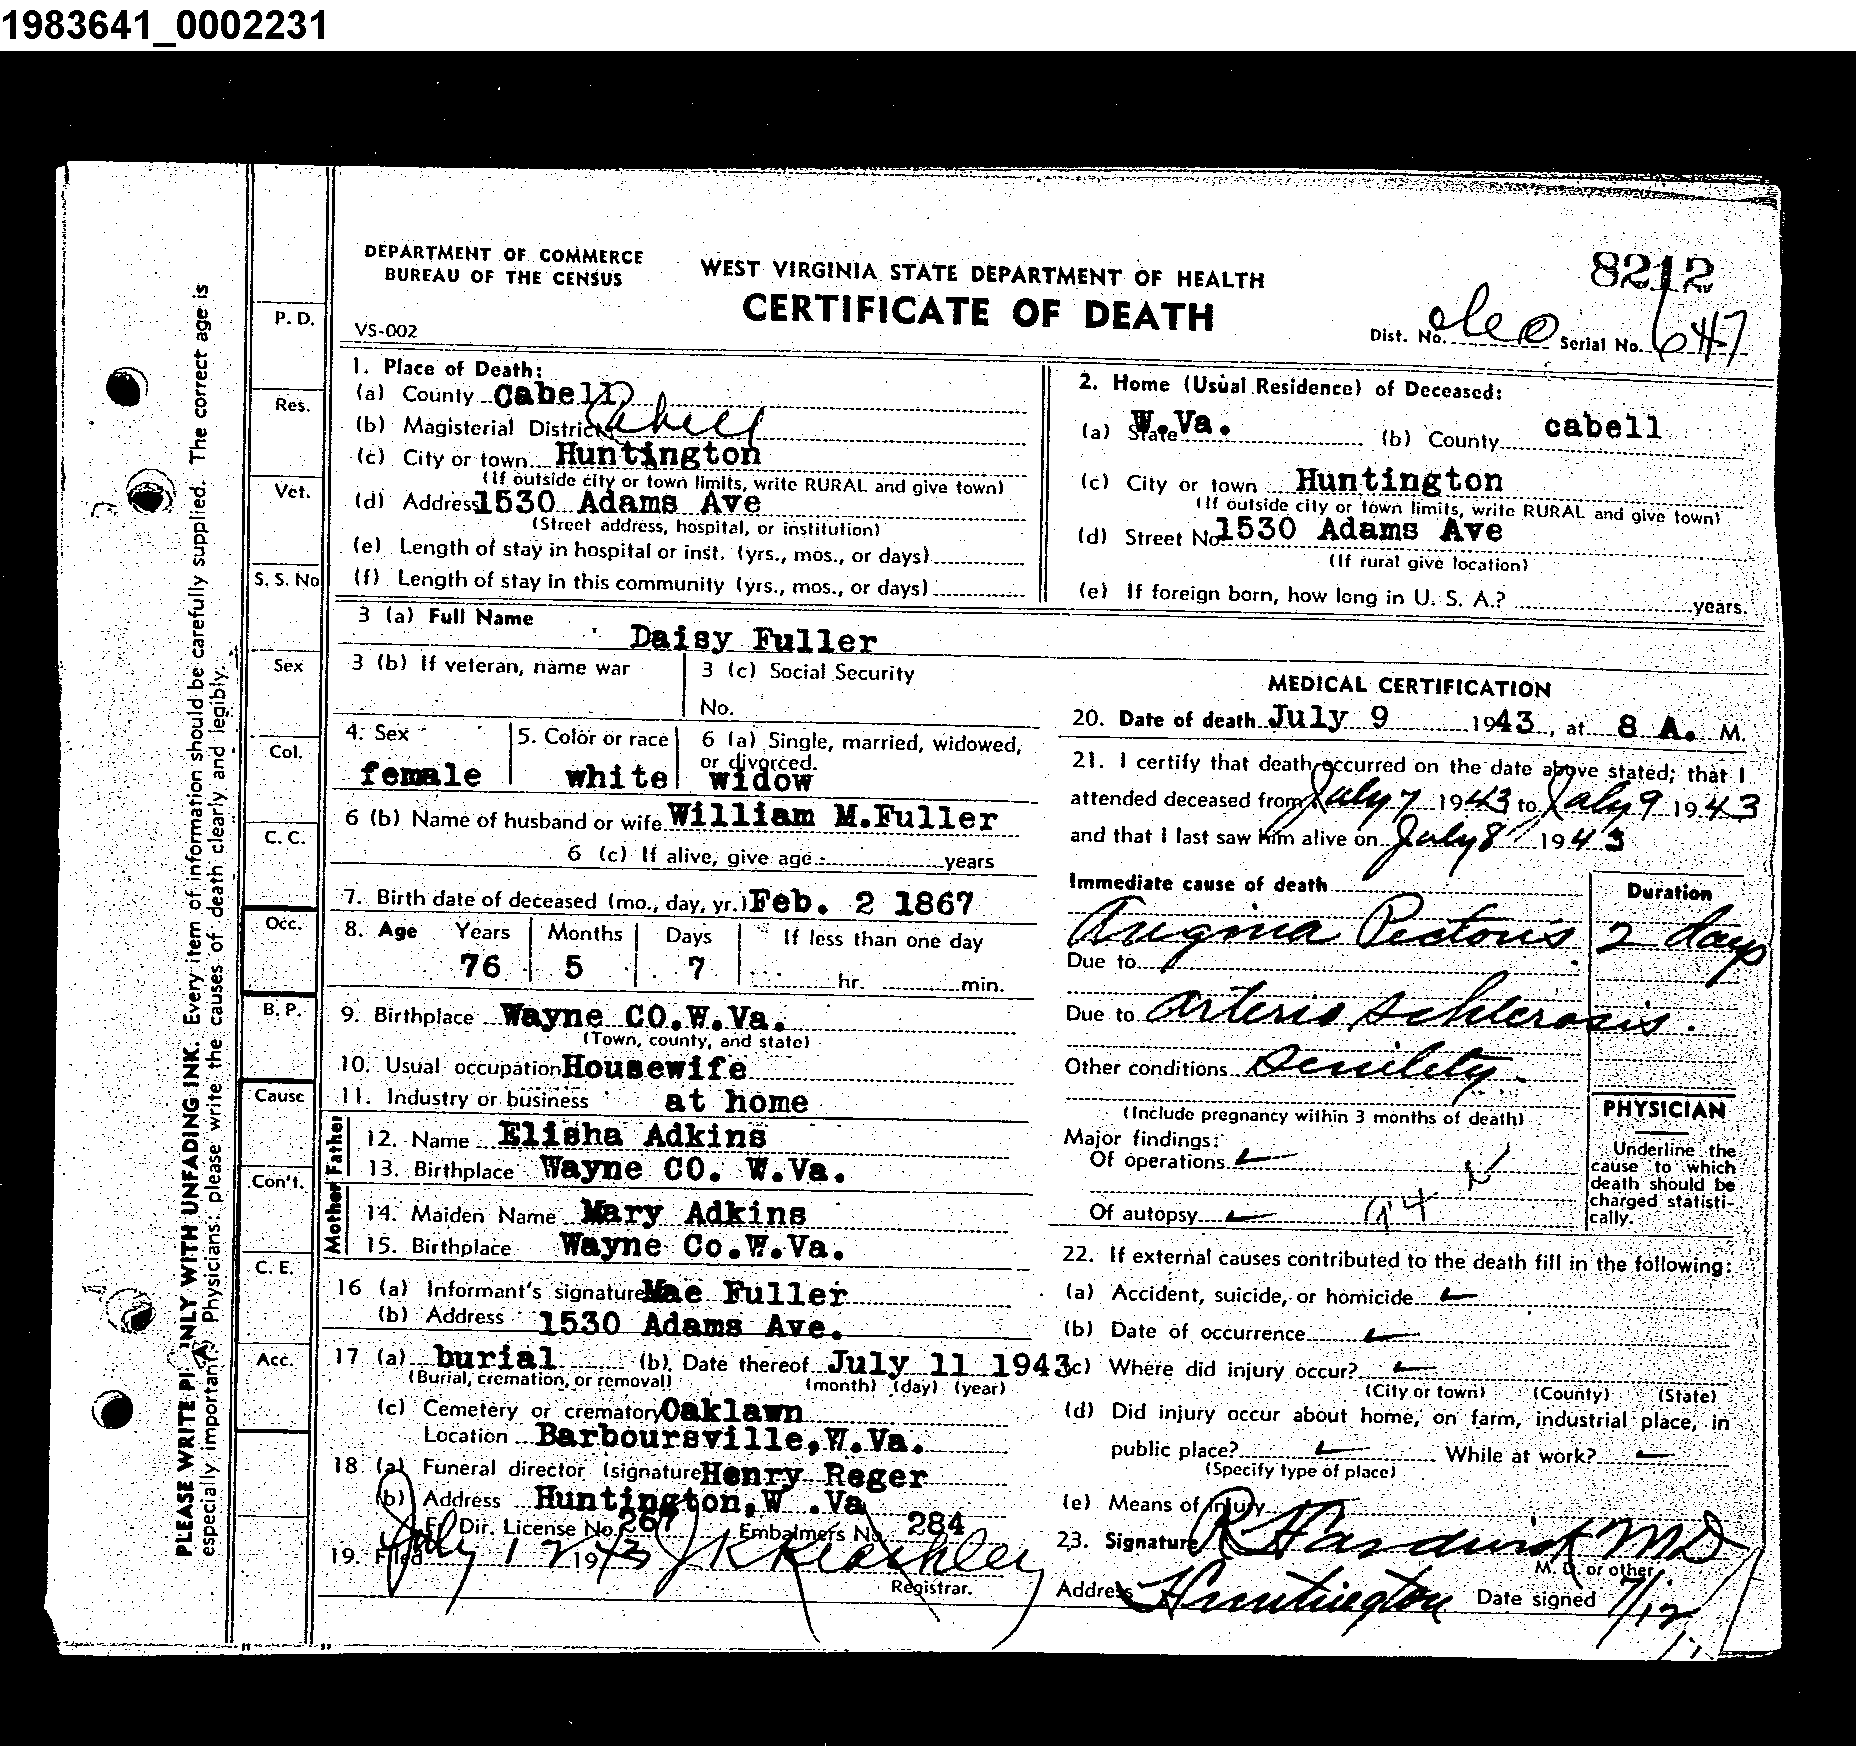 1983641_0002231
DEPARTMENT OF COMMERCE
BUREAU OF THE CENSUS
VS-002
WEST VIRGINIA STATE DEPARTMENT OF HEALTH
CERTIFICATE OF DEATH
8212
Dist. No. Serial No. 647
1. Place of Death:
(a) County Cabell
(b) Magisterial District Cabell
(c) City or town Huntington
(If outside city or town limits, write RURAL and give town)
(d) Address 1530 Adams Ave
(Street address, hospital, or institution)
(e) Length of stay in hospital or inst. (yrs., mos., or days)
(f) Length of stay in this community (yrs., mos., or days)
2. Home (Usual Residence) of Deceased:
(a) State W.Va. (b) County cabell
(c) City or town Huntington
(If outside city or town limits, write RURAL and give town)
(d) Street No. 1530 Adams Ave
(If rural give location)
(e) If foreign born, how long in U. S. A.? years.
3 (a) Full Name Daisy Fuller
3 (b) If veteran, name war
3 (c) Social Security
No.
4. Sex female
5. Color or race white
6 (a) Single, married, widowed,
or divorced. widow
6 (b) Name of husband or wife William M.Fuller
6 (c) If alive, give age years
7. Birth date of deceased (mo., day, yr.) Feb. 2 1867
8. Age Years Months Days If less than one day
76 5 7 hr. min.
9. Birthplace Wayne CO.W.Va.
(Town, county, and state)
10. Usual occupation Housewife
11. Industry or business at home
Father
12. Name Elisha Adkins
13. Birthplace Wayne CO. W.Va.
Mother
14. Maiden Name Mary Adkins
15. Birthplace Wayne Co.W.Va.
16 (a) Informant's signature Mae Fuller
(b) Address 1530 Adams Ave.
17 (a) burial (b) Date thereof July 11 1943
(Burial, cremation, or removal) (month) (day) (year)
(c) Cemetery or crematory Oaklawn
Location Barboursville,W.Va.
18 (a) Funeral director (signature Henry Reger
(b) Address Huntington,W .Va
F. Dir. License No. 267 Embalmers No. 284
19. Filed July 12 1943
Registrar.
MEDICAL CERTIFICATION
20. Date of death July 9 1943, at 8 A. M.
21. I certify that death occurred on the date above stated; that I
attended deceased from July 7 1943 to July 9 1943
and that I last saw him alive on July 8 1943
Immediate cause of death Duration
Angina Pectoris 2 days
Due to
Due to Arterio Schlerosis.
Other conditions Senility.
(Include pregnancy within 3 months of death)
Major findings:
Of operations
Of autopsy 94
PHYSICIAN
Underline the
cause to which
death should be
charged statisti-
cally.
22. If external causes contributed to the death fill in the following:
(a) Accident, suicide, or homicide
(b) Date of occurrence
(c) Where did injury occur?
(City or town) (County) (State)
(d) Did injury occur about home, on farm, industrial place, in
public place? While at work?
(Specify type of place)
(e) Means of injury
23. Signature R Hardwick MD
M. D. or other
Address Huntington Date signed 7/12
P. D.
Res.
Vet.
S. S. No
Sex
Col.
C. C.
Occ.
B. P.
Cause
Con't.
C. E.
Acc.
PLEASE WRITE PLAINLY WITH UNFADING INK. Every item of information should be carefully supplied. The correct age is
especially important. Physicians: please write the causes of death clearly and legibly.